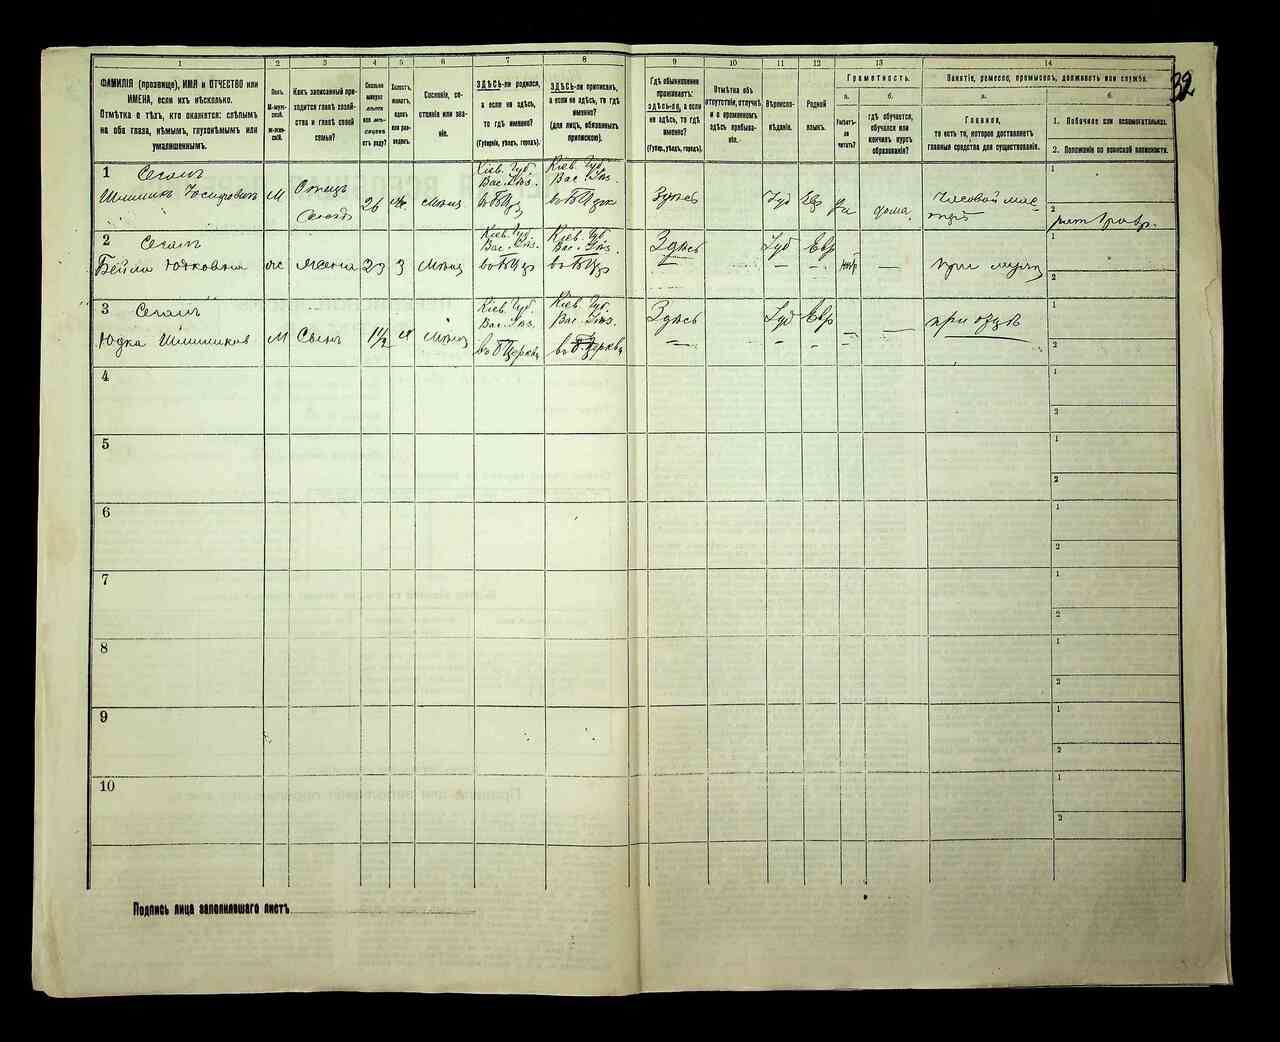 32
1
2
3
4
5
6
7
8
9
10
11
12
13
14
ФАМИЛІЯ (прозвище), ИМЯ и ОТЧЕСТВО или
ИМЕНА, если ихъ нѣсколько.
Отмѣтка о тѣхъ, кто окажется: слѣпымъ
на оба глаза, нѣмымъ, глухонѣмымъ или
умалишеннымъ.
Полъ.
М-муж-
ской.
Ж-жен-
скій.
Какъ записанный при-
ходится главѣ хозяй-
ства и главѣ своей
семьи?
Сколько
минуло
лѣтъ
или мѣ-
сяцевъ
отъ роду?
Холостъ,
женатъ,
вдовъ
или раз-
веденъ.
Сословіе, со-
стояніе или зва-
ніе.
ЗДѢСЬ-ли родился,
а если не здѣсь,
то гдѣ именно?
(Губернія, уѣздъ, городъ).
ЗДѢСЬ-ли приписанъ,
а если не здѣсь, то гдѣ
именно?
(для лицъ, обязанныхъ
припискою).
Гдѣ обыкновенно
проживаетъ:
здѣсь-ли, а если
не здѣсь, то гдѣ
именно?
(Губер., уѣздъ, городъ).
Отмѣтка объ
отсутствіи, отлучкѣ
и о временномъ
здѣсь пребыва-
ніи.
Вѣроиспо-
вѣданіе.
Родной
языкъ.
Грамотность.
а.
Умѣетъ-
ли
читать?
б.
гдѣ обучается,
обучался или
кончилъ курсъ
образованія?
Занятіе, ремесло, промыселъ, должность или служба.
а.
Главное,
то есть то, которое доставляетъ
главныя средства для существованія.
б.
1. Побочное или вспомогательное.
2. Положеніе по воинской повинности.
1 Сегалъ
Шлиомъ Іосифовъ М Отецъ 26 Мѣщ
Кіев. Губ. Вас. Уѣз.
Кіев. Губ. Вас. Уѣз.
Здѣсь Іуд Евр да дома Часовой
1
2
2 Сегалъ
Бейла Юдковна жс жена 23 З Мѣщ
Кіев. Губ. Вас. Уѣз. в Б Цер
Кіев. Губ. Вас. Уѣз. в Б Цер
Здѣсь Іуд Евр — при мужѣ
1
2
3 Сегалъ
Юдка М Сынъ 1½ Х Мѣщ
Кіев. Губ. Вас. Уѣз. в Б Церквѣ
Кіев. Губ. Вас. Уѣз. в Б. Церквѣ
Здѣсь Іуд Евр — — при отцѣ
1
2
4
1
2
5
1
2
6
1
2
7
1
2
8
1
2
9
1
2
10
1
2
Подпись лица заполнявшаго листъ